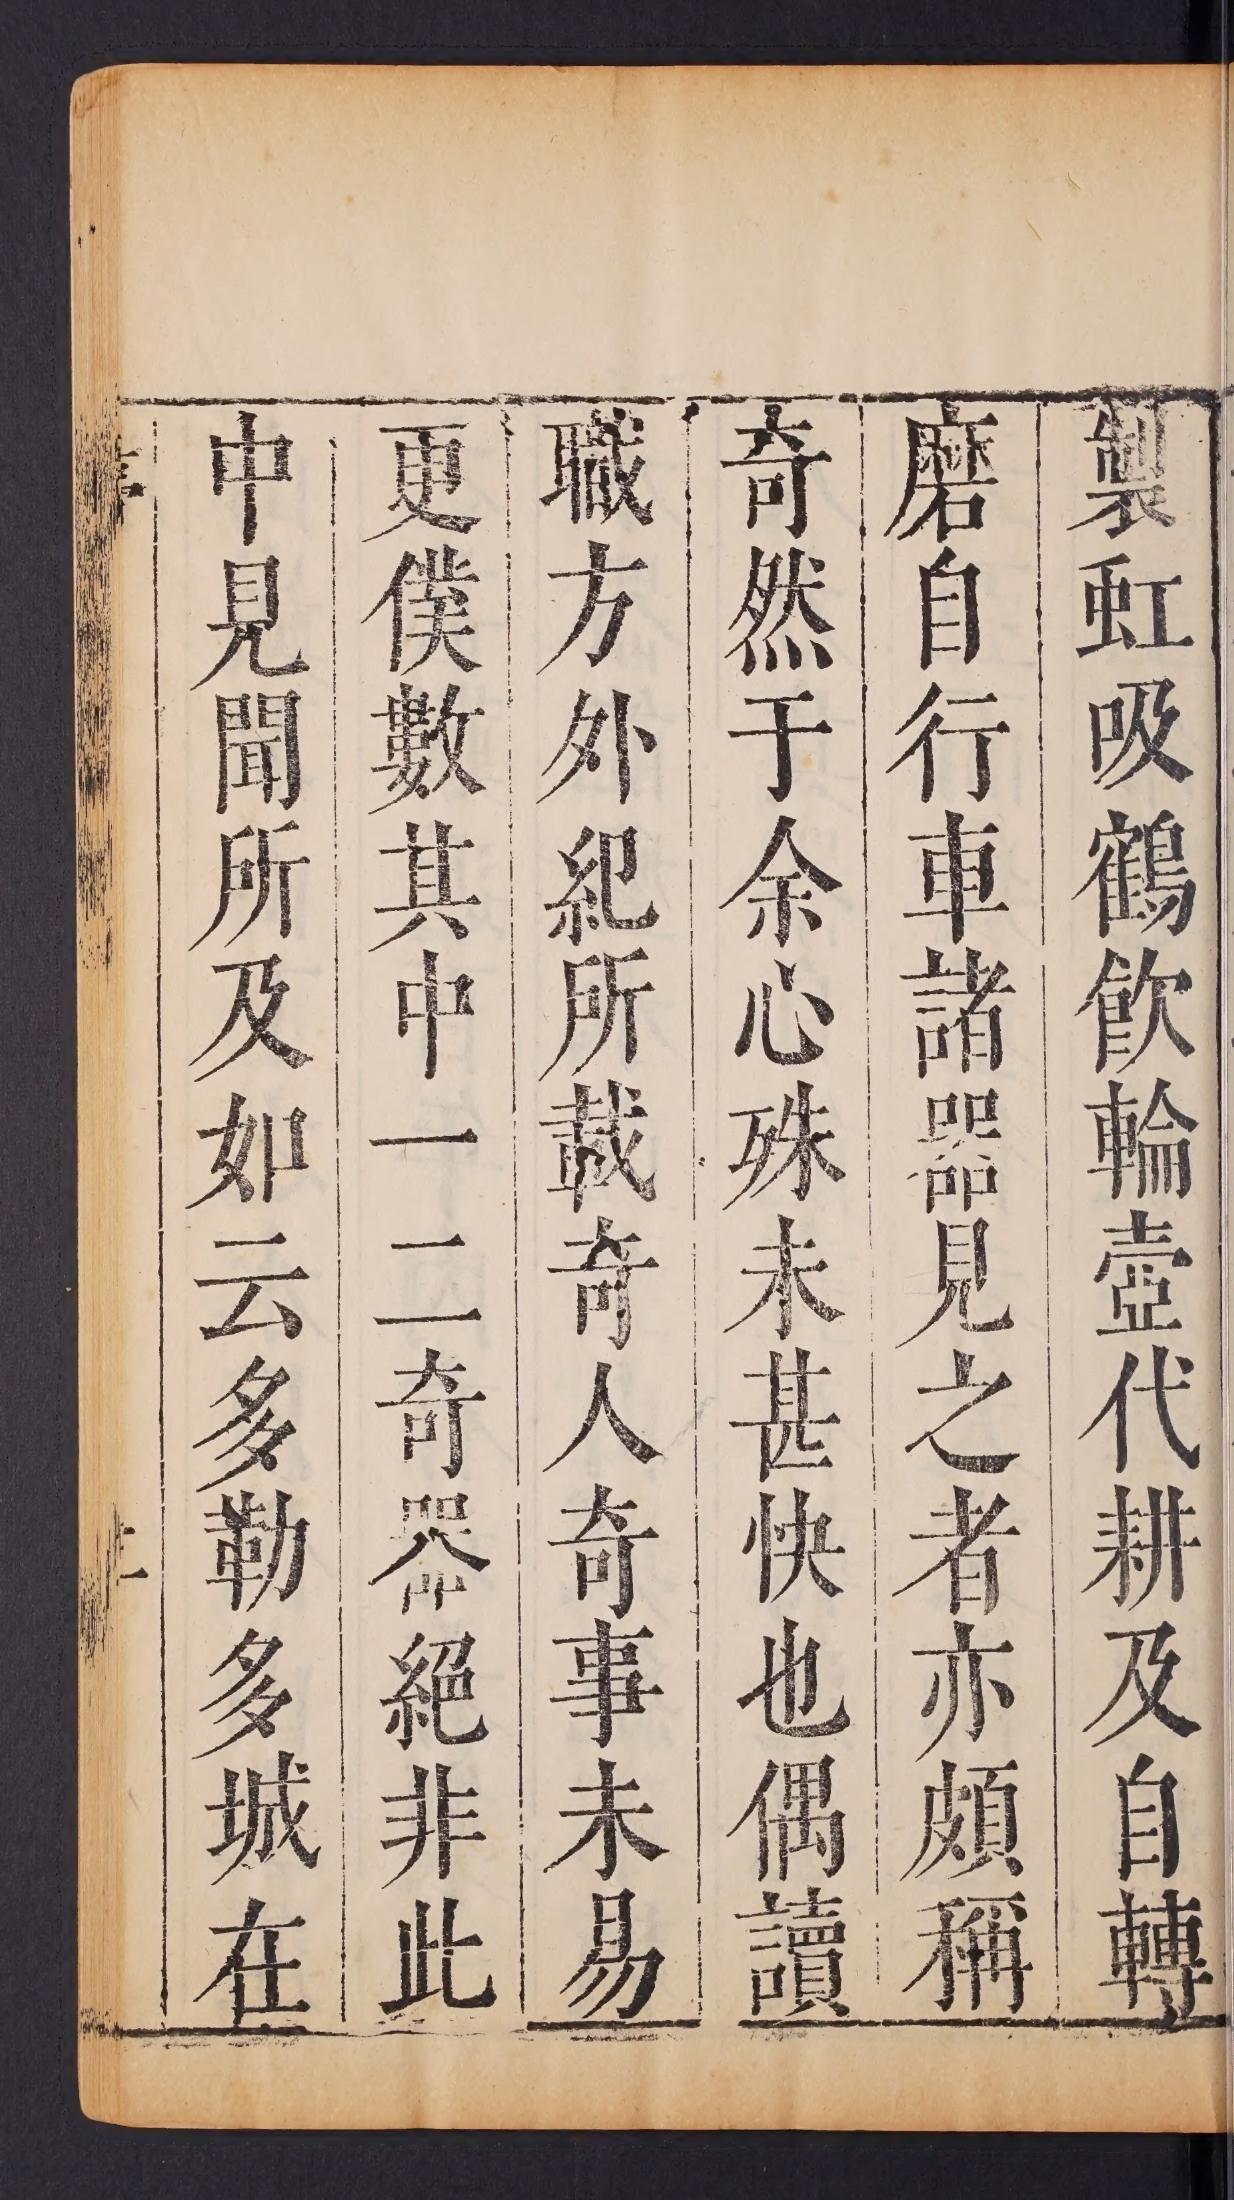 製虹吸鶴飮輪壺代耕及自轉
磨自行車諸器見之者亦頗稱
奇然于余心殊未甚快也偶讀
職方外紀所載奇人奇事未易
更僕數其中一二奇器絕非此
中見聞所及如云多勒多城在